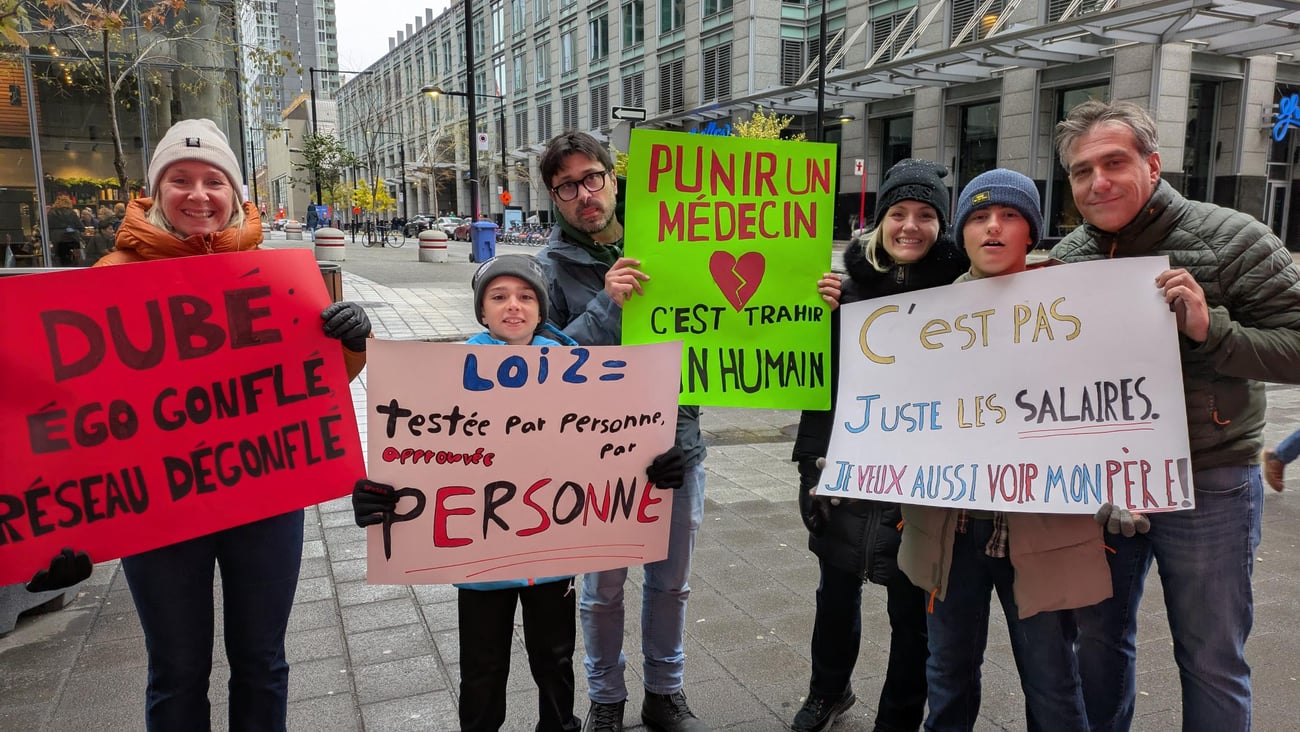 DUBÉ :
ÉGO GONFLÉ
RÉSEAU DÉGONFLÉ
LOi 2 =
testée par personne,
approuvée par
PERSONNE
PUNIR UN
MÉDECIN
C'EST TRAHIR
N HUMAIN
C'EST PAS
JUSTE LES SALAIRES.
JE VEUX AUSSI VOIR MON PÈRE!